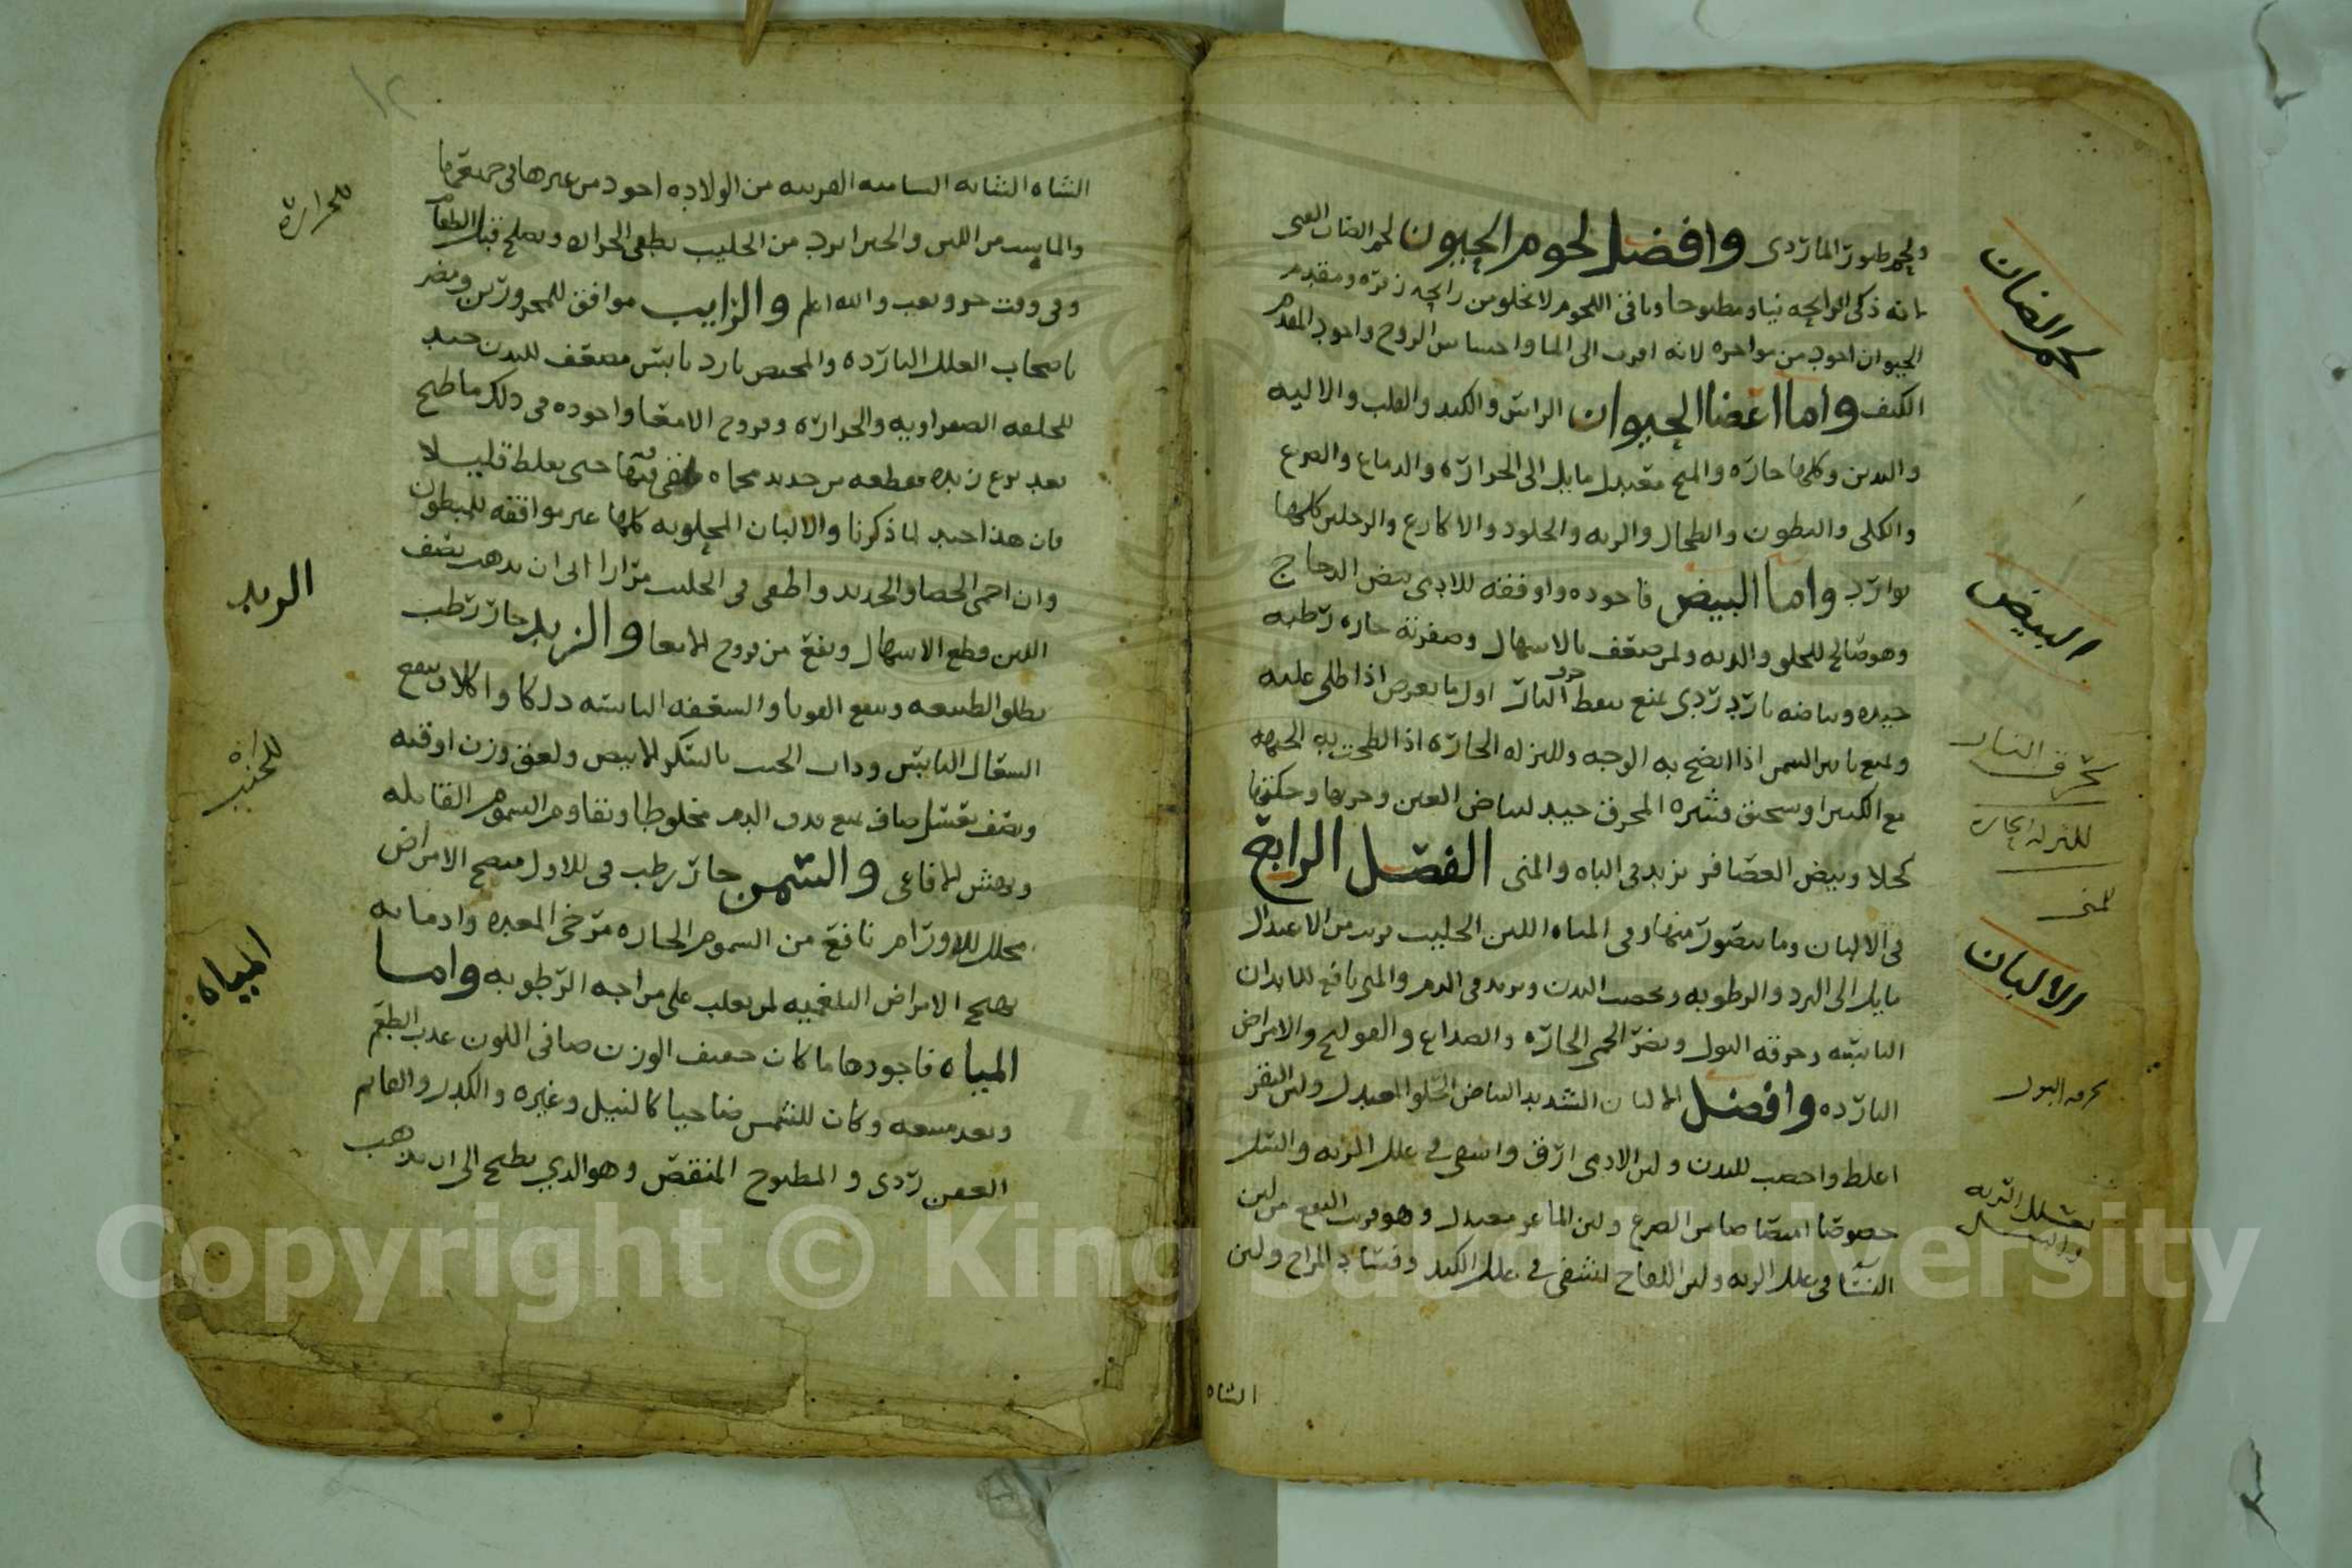 ولحم طيور الماء ردى وافضل لحوم الحيوان لحم الضان الفتى
لانه ذكى الرايحه نيا ومطبوخا وباقى اللحوم لا تخلو من رايحه زفره ومقدم
الحيوان اجود من مواخره لانه اقرب الى الما واحساس الروح واجود المقدم
الكتف واما اعضا الحيوان الراس والكبد والقلب والاليه
والبدن وكلها حاره والمح معتدل مايل الى الحراره والدماغ والضرع
والكلى والبطون والطحال والريه والجلود والاكارع والرجلين كلها
بوارد واما البيض فاجوده واوفقه للادمى بيض الدجاج
وهو صالح للحلق والريه ولمن ضعف بالاسهال وصفرته حاره رطبه
جيده وبياضه بارد ردى يمنع تنفط حرق النار اول ما يعرض اذا طلى عليه
ويمنع تاثير الشمس اذا لطخ به الوجه وللنزله الحاره اذا لطخت به الجبهه
مع الكندر او سحق وقشره المحرق جيد لبياض العين وجربها وحكتها
كحلا وبيض العصافر يزيد فى الباه والمنى الفصل الرابع
فى الالبان وما يتصور منها وفى المياه اللبن الحليب قريب من الاعتدال
مايل الى البرد والرطوبه ويخصب البدن ويزيد فى الدم والمنى نافع للابدان
اليابسه وحرقه البول ويضر الحمى الحاره والصداع والقولنج والامراض
البارده وافضل الالبان الشديد البياض الحلو المعتدل ولبن البقر
اغلظ واخصب للبدن ولبن الادمى ارق واشفى فى علل الريه والسل
خصوصا امتصاصا من الضرع ولبن الماعز معتدل وهو قريب النفع من لبن
النسا فى علل الريه ولبن اللقاح يشفى فى علل الكبد وفساد المزاج ولبن
الشاه
لحم الضان
البيض
لحرق النار
للنزله الحاره
للمنى
الالبان
لحرقه البول
لعلل الريه
والسل
١٢
الشاه الشابه السامنه القريبه من الولاده اجود من غيرها فى جميع ما
والمايت من اللبن والخبز ابرد من الحليب يطفى الحراره ويصلح قبل الطعام
وفى وقت حر وتعب والله اعلم والرايب موافق للمحرورين ومضر
باصحاب العلل البارده والمخيض بارد يابس مضعف للبدن جيد
للخلفه الصفراويه والحراره وقروح الامعا واجوده فى ذلك ما طبخ
بعد نزع زبده بقطعه من حديد محماه تطفى فيها حتى يغلظ قليلا
فان هذا جيد لما ذكرنا والالبان المحلوبه كلها غير موافقه للمبطون
وان احمى الحصا والحديد واطفى فى الحليب مرارا الى ان يذهب نصف
اللبن قطع الاسهال ونفع من قروح الامعا والزبد حار رطب
يطلق الطبيعه وينفع القوبا والسعفه اليابسه دلكا واكلا وينفع
السعال اليابس وذات الجنب بالسكر الابيض ولعق وزن اوقيه
ونصف بعسل صاف يمنع نفث الدم مخلوطا ويقاوم السموم القاتله
ونهش الافاعى والسمن حار رطب فى الاول منضج الامراض
محلل للاورام نافع من السموم الحاره مرخى المعده وادمانه
يهيج الامراض البلغميه لمن يغلب على مزاجه الرطوبه واما
المياه فاجودها ما كان خفيف الوزن صافى اللون عذب الطعم
وبعد منبعه وكان للشمس ضاحيا كالنيل وغيره والكدر والقايم
العفن ردى والمطبوخ المنقص وهو الذي يطبخ الى ان يذهب
للحراره
الزبد
للجنب
المياه
Copyright © King Saud University